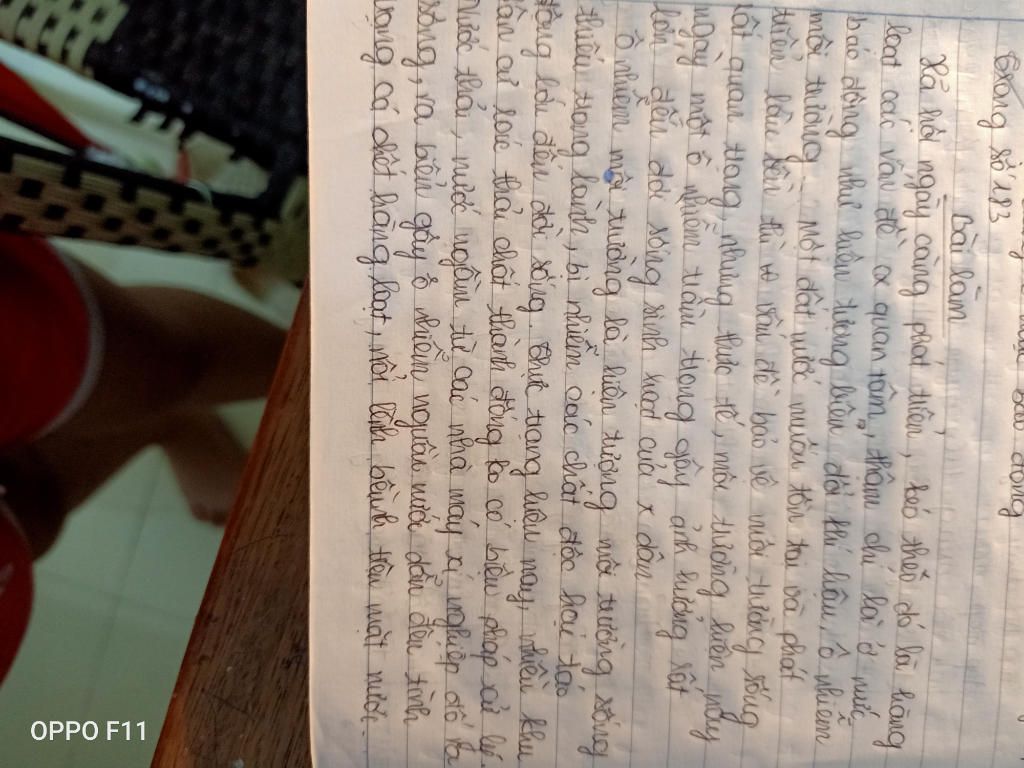 động
trang số 123
Bài làm
Xã hội ngày càng phát triển, kéo theo đó là hàng
loạt các vấn đề cx quan tâm, thậm chí là ở mức
báo động như hiện tượng biến đổi khí hậu, ô nhiễm
môi trường... một đất nước muốn tồn tại và phát
triển lâu bền thì vấn đề bảo vệ môi trường sống
rất quan trọng, nhưng thực tế, môi trường hiện nay
ngày một ô nhiễm trầm trọng gây ảnh hưởng rất
lớn đến đời sống sinh hoạt của x dân
Ô nhiễm môi trường là hiện tượng môi trường sống
thiếu trong lành, bị nhiễm các chất độc hại tác
động lớn đến đời sống. thực trạng hiện nay, nhiều khu
dân cư rác thải chất thành đống ko có biện pháp xử lí.
nước thải, nước ngầm từ các nhà máy xí nghiệp đổ ra
sông, ra biển gây ô nhiễm nguồn nước dẫn đến tình
trạng cá chết hàng loạt, nổi lềnh bềnh trên mặt nước.
OPPO F11